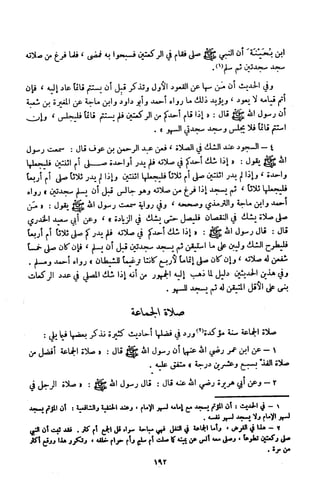 ابن بُحَيْنة" أن النبي ﷺ صلى فقام في الركعتين فسبحوا به فمضى ، فلما فرغ من صلاته
سجد سجدتين ثم سلم(١).
وفي الحديث أن من سها عن القعود الأول وتذكر قبل أن يستتم قائماً عاد إليه ، فإن
أتم قيامه لا يعود ، ويؤيد ذلك ما رواه أحمد وأبو داود وابن ماجة عن المغيرة بن شعبة
أن رسول الله ﷺ قال : « إذا قام أحدكم من الركعتين فلم يستتم قائماً فليجلس ، وإن
استتم قائماً فلا يجلس وسجد سجدتي السهو » .
٤ – السجود عند الشك في الصلاة ، فعن عبد الرحمن بن عوف قال : سمعت رسول
الله ﷺ يقول : « إذا شك أحدكم في صلاته فلم يدر أواحدة صلى أم اثنتين فليجعلها
واحدة ، وإذا لم يدر اثنتين صلى أم ثلاثاً فليجعلها اثنتين وإذا لم يدر ثلاثاً صلى أم أربعاً
فليجعلها ثلاثاً ، ثم يسجد إذا فرغ من صلاته وهو جالس قبل أن يسلم سجدتين » رواه
أحمد وابن ماجة والترمذي وصححه ، وفي رواية سمعت رسول الله ﷺ يقول : « من
صلى صلاة يشك في النقصان فليصل حتى يشك في الزيادة » ، وعن أبي سعيد الخدري
قال : قال رسول الله ﷺ : « إذا شك أحدكم في صلاته فلم يدر كم صلى ثلاثاً أم أربعاً
فليطرح الشك وليبن على ما استيقن ثم يسجد سجدتين قبل أن يسلم ، فإن كان صلى خمساً
شفعن له صلاته ، وإن كان صلى إتماماً لأربع كانتا ترغيماً للشيطان » رواه أحمد ومسلم .
وفي هذين الحديثين دليل لما ذهب إليه الجمهور من أنه إذا شك المصلي في عدد الركعات
بنى على الأقل المتيقن له ثم يسجد للسهو .
صلاة الجماعة
صلاة الجماعة سنة مؤكدة(٢) ورد في فضلها أحاديث كثيرة نذكر بعضها فيما يلي :
١ – عن ابن عمر رضي الله عنهما أن رسول الله ﷺ قال : « صلاة الجماعة أفضل من
صلاة الفذ بسبع وعشرين درجة » متفق عليه .
٢ – وعن أبي هريرة رضي الله عنه قال : قال رسول الله ﷺ : « صلاة الرجل في
١ – في الحديث : أن المؤتم يسجد مع إمامه لسهو الإمام ، وعند الحنفية والشافعية : أن المؤتم يسجد
لسهو الإمام ولا يسجد لسهو نفسه .
٢ – هذا في الفرض ، وأما الجماعة في النفل فهي مباحة سواء قل الجمع أم كثر . فقد ثبت أن النبي
صلى ركعتين تطوعاً ، وصلى معه أنس عن يمينه كما صلت أم سليم وأم حرام خلفه ، وتكرر هذا ووقع أكثر
من مرة .
١٩٢